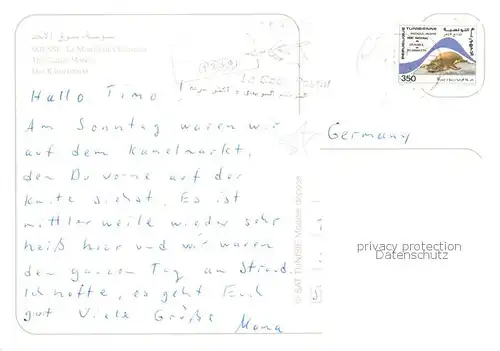 سوسة - سوق الأحد
SOUSSE
Hallo Timo!
Am Sonntag waren wir
auf dem Kamelmarkt,
den Du vorne auf der
Karte siehst. Es ist
mittlerweile wieder sehr
heiß hier und wir waren
den ganzen Tag am Strand.
Ich hoffe, es geht Euch
gut Viele Grüße
Mama
© SAT TUNISIE
REPUBLIQUE TUNISIENNE
350
Le Code Postal
Germany
privacy protection
Datenschutz